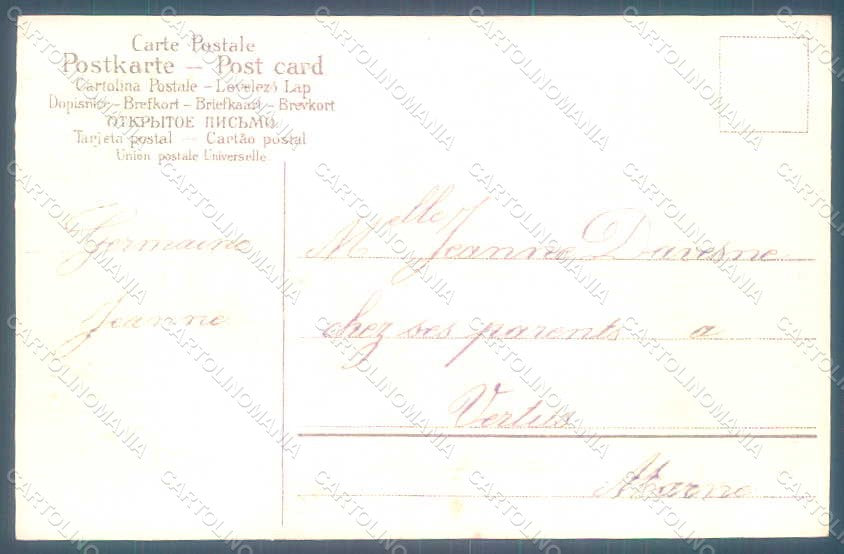 Carte Postale
Postkarte – Post card
Cartolina Postale – Levelező Lap
Dopisnice – Brefkort – Briefkaart – Brevkort
ОТКРЫТОЕ ПИСЬМО.
Tarjeta postal — Cartão postal
Union postale Universelle
Germaine
Jeanne
Melle Jeanne Davesne
chez ses parents a
Vertus
Marne
CARTOLINOMANIA